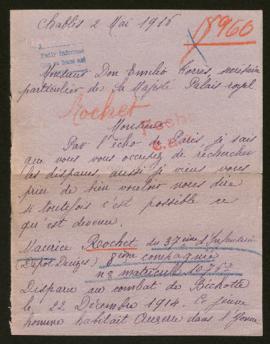 Chablis 2 Mai 1916
8960
Monsieur Don Emilio Torres, secrétaire
particulier de sa Majesté Palais royal
Rochet
Monsieur
Par l'écho de Paris je sais
que vous vous occupez de rechercher
les disparus, aussi je viens vous
prier de bien vouloir nous dire
si toutefois c'est possible ce
qui est devenu.
Maurice Rochet du 37ème d'Infanterie
8ième compagnie
n° matricule
Disparu au combat de
le 22 Décembre 1914. Ce jeune
homme habitait Auxerre dans l'Yonne